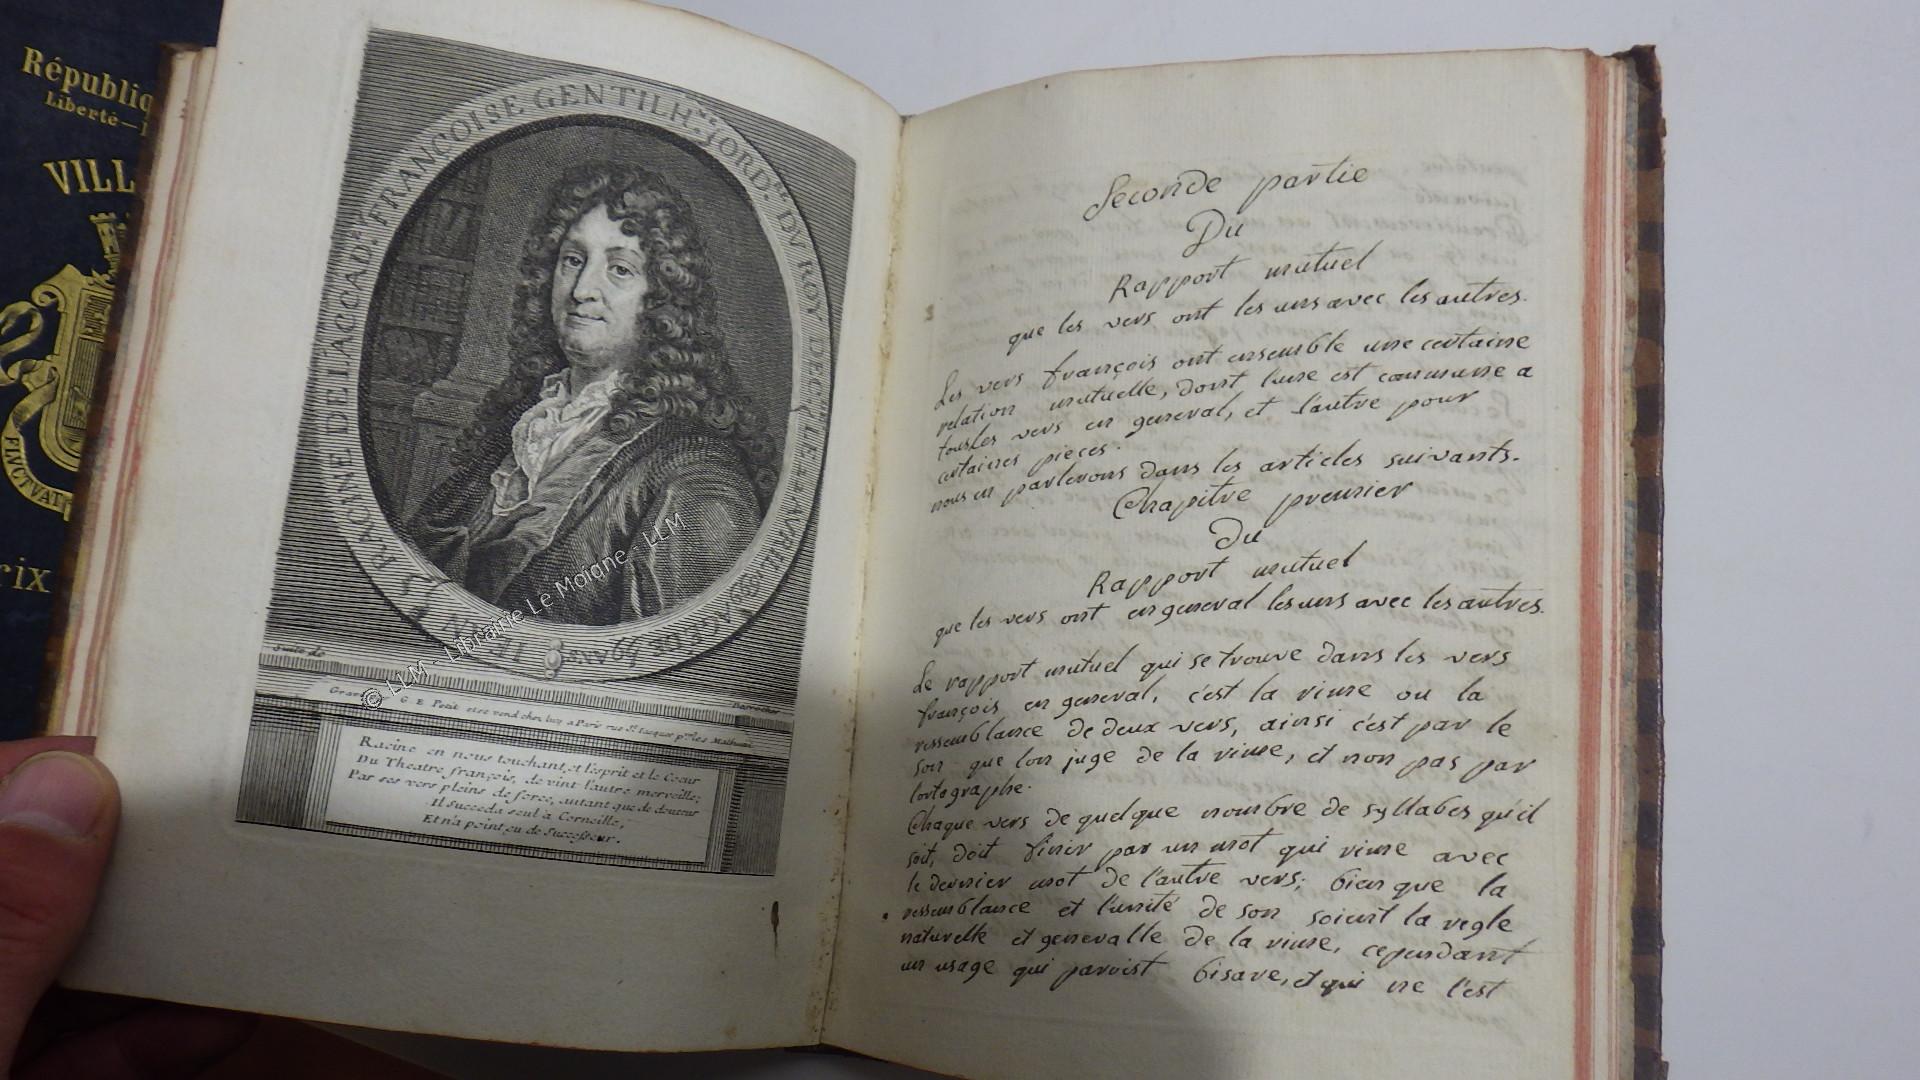 Républiq
Liberté—
VILL
FLVCTVAT
rix
IEAN RACINE DE L'ACCAD.ie FRANCOISE GENTILH.me ORD.re DV ROY DECEDE
AGE DE 59 ANS
Suite de
Desrochers
G. E. Petit et se vend chez luy a Paris rue St. Jacques p.res les Mathurins
Racine en nous touchant, et l'esprit et le Cœur
Du Theatre françois, devint l'autre merveille;
Par ses vers pleins de force, autant que de douceur
Il succeda seul à Corneille,
Et n'a point eu de Successeur.
© LLM - Librairie Le Moigne - LLM
Seconde partie
Du
Rapport mutuel
que les vers ont les uns avec les autres.
Les vers françois ont ensemble une certaine
relation mutuelle, dont l'une est commune a
tous les vers en general, et l'autre pour
certaines pieces.
nous en parlerons dans les articles suivants.
Chapitre premier
Du
Rapport mutuel
que les vers ont en general les uns avec les autres.
Le rapport mutuel qui se trouve dans les vers
françois en general, c'est la rime ou la
ressemblance de deux vers, ainsi c'est par le
son que lon juge de la rime, et non pas par
lortographe.
Chaque vers de quelque nombre de syllabes qu'il
soit, doit finir par un mot qui rime avec
le dernier mot de l'autre vers; bien que la
ressemblance et l'unité de son soient la regle
naturelle et generalle de la rime, cependant
un usage qui paroist bisare, et qui ne l'est